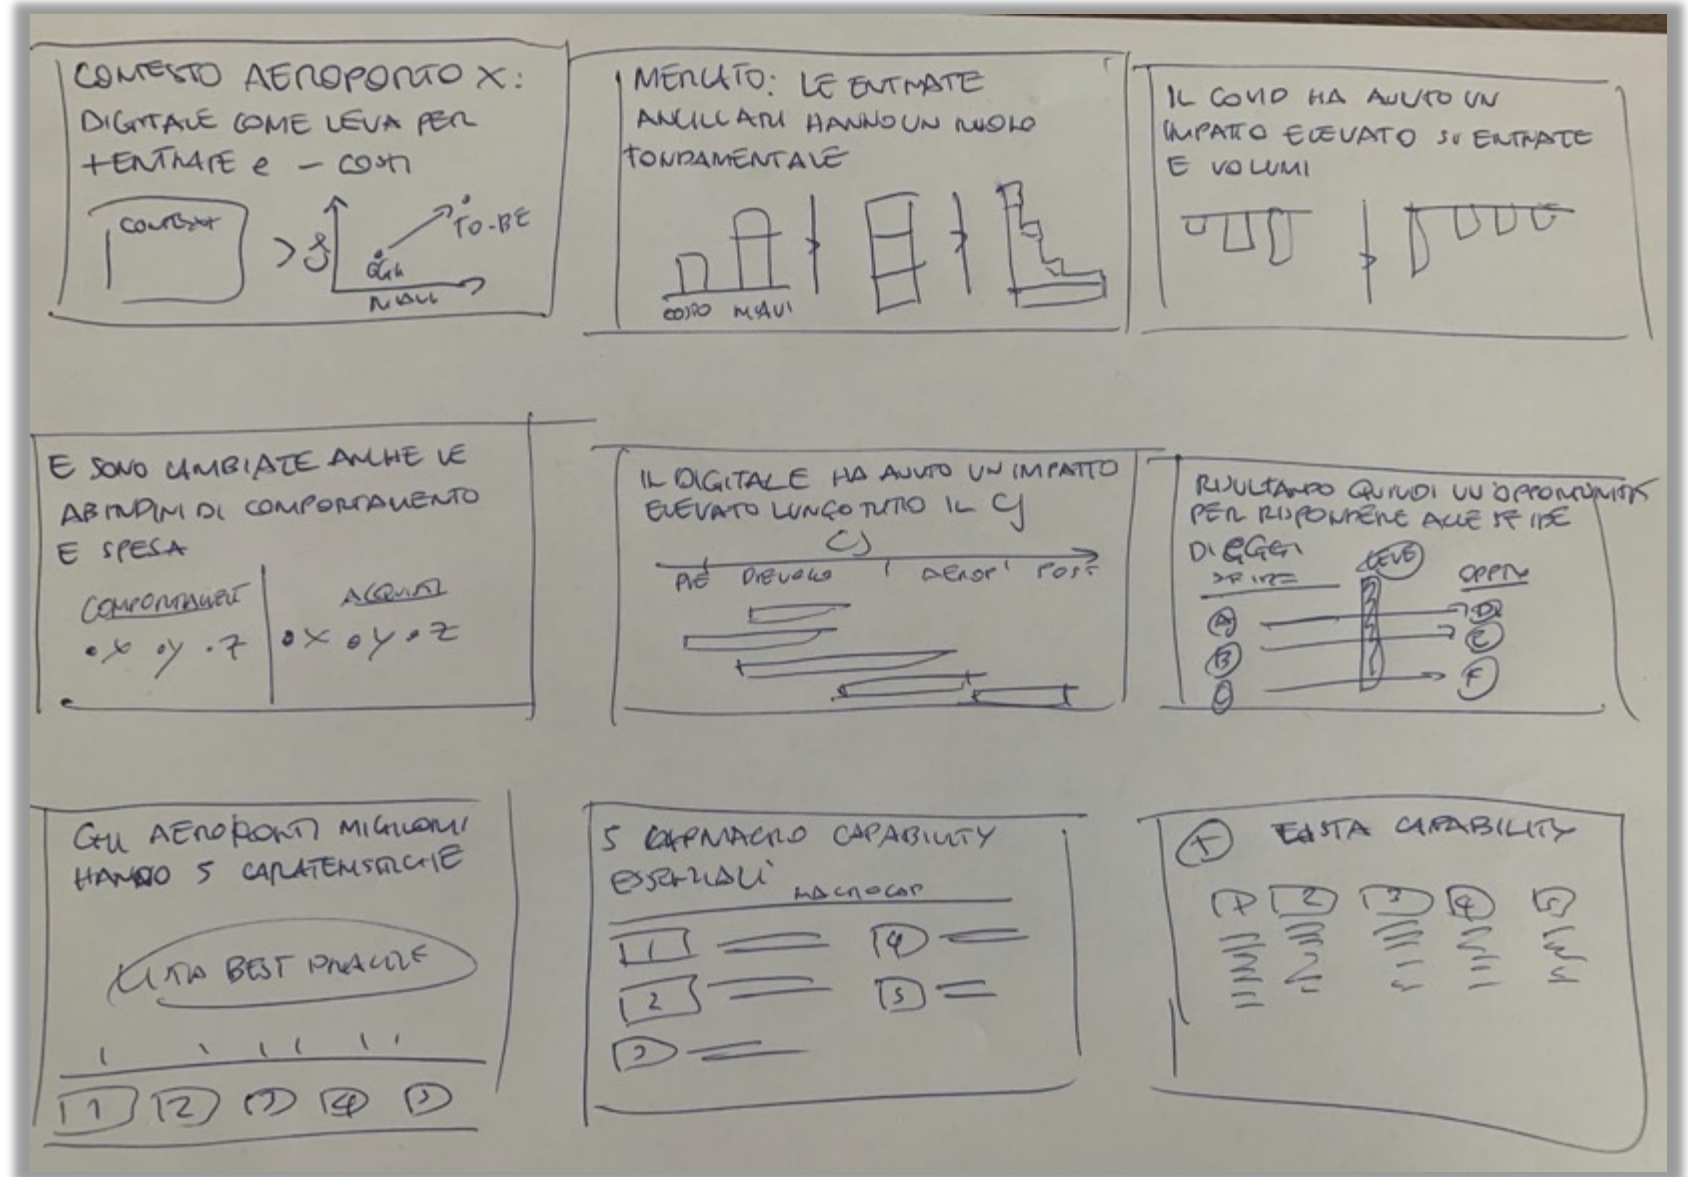 CONTESTO AEROPORTO X:
DIGITALE COME LEVA PER
+ENTRATE e - COSTI
CONTEXT
TO-BE
MERCATO: LE ENTRATE
ANCILLARI HANNO UN RUOLO
FONDAMENTALE
COSTO RICAVI
IL COVID HA AVUTO UN
IMPATTO ELEVATO SU ENTRATE
E VOLUMI
E SONO CAMBIATE ANCHE LE
ABITUDINI DI COMPORTAMENTO
E SPESA
COMPORTAMENTI
• X • Y • Z
ACQUISTI
• X • Y • Z
IL DIGITALE HA AVUTO UN IMPATTO
ELEVATO LUNGO TUTTO IL CJ
CJ
AEROP POST
RISULTANDO QUINDI UN'OPPORTUNITÀ
PER RISPONDERE ALLE SFIDE
DI OGGI
SFIDE LEVE OPPTY
A D
B E
C F
GLI AEROPORTI MIGLIORI
HANNO 5 CARATTERISTICHE
LISTA BEST PRACTICE
1 2 3 4 5
5 MACRO CAPABILITY
ESSENZIALI
MACROCAP
1 4
2 5
3
LISTA CAPABILITY
1 2 3 4 5